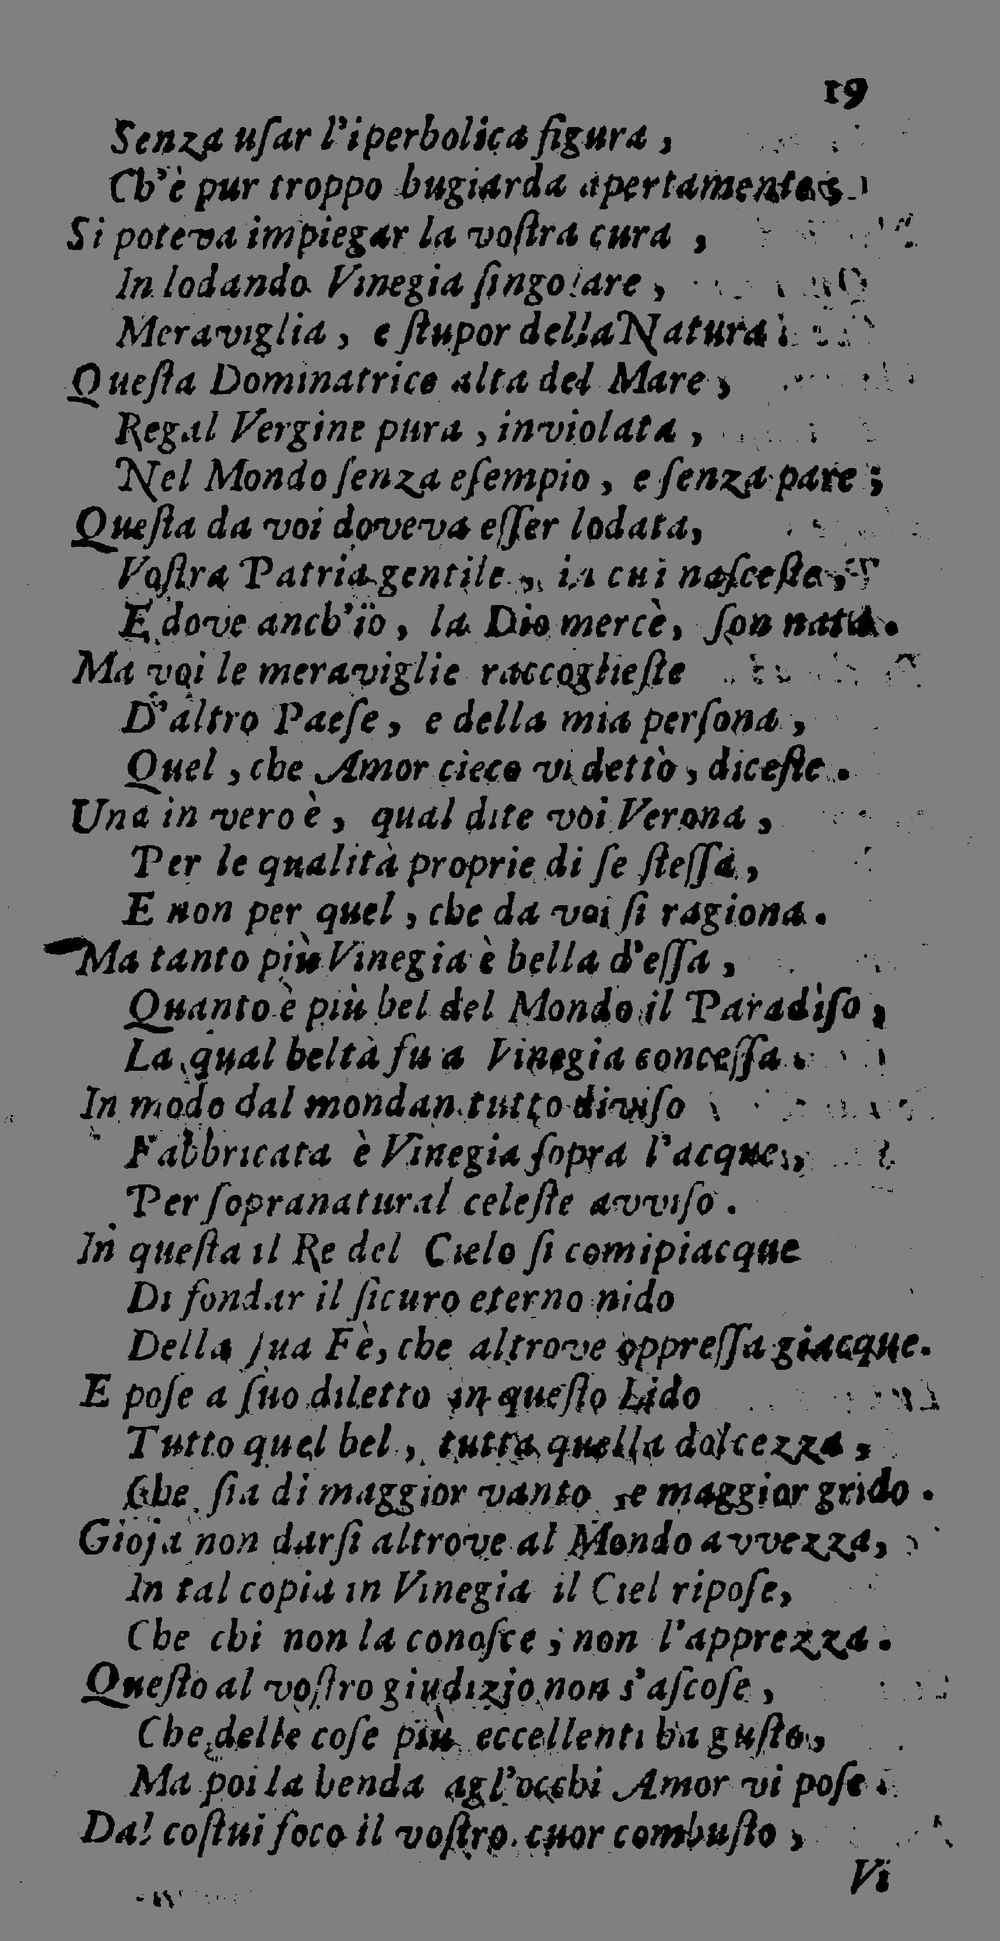 19
Senza uſar l'iperbolica figura,
Ch'è pur troppo bugiarda apertamente.
Si poteva impiegar la voſtra cura,
In lodando Vinegia ſingolare,
Meraviglia, e ſtupor della Natura.
Queſta Dominatrice alta del Mare,
Regal Vergine pura, inviolata,
Nel Mondo ſenza eſempio, e ſenza pare;
Queſta da voi doveva eſſer lodata,
Voſtra Patria gentile, in cui naſceſte,
E dove anch'ïo, la Dio mercè, ſon nata.
Ma voi le meraviglie raccoglieſte
D'altro Paeſe, e della mia perſona,
Quel, che Amor cieco vi dettò, diceſte.
Una in vero è, qual dite voi Verona,
Per le qualità proprie di ſe ſteſſa,
E non per quel, che da voi ſi ragiona.
Ma tanto più Vinegia è bella d'eſſa,
Quanto è più bel del Mondo il Paradiſo,
La qual beltà fu a Vinegia conceſſa.
In modo dal mondan tutto diviſo
Fabbricata è Vinegia ſopra l'acque,
Per ſopranatural celeſte avviſo.
In queſta il Re del Cielo ſi comipiacque
Di fondar il ſicuro eterno nido
Della ſua Fè, che altrove oppreſſa giacque.
E poſe a ſuo diletto in queſto Lido
Tutto quel bel, tutta quella dolcezza,
Che ſia di maggior vanto, e maggior grido.
Gioja non darſi altrove al Mondo avvezza,
In tal copia in Vinegia il Ciel ripoſe,
Che chi non la conoſce; non l'apprezza.
Queſto al voſtro giudizio non s'aſcoſe,
Che delle coſe più eccellenti ha guſto,
Ma poi la benda agl'occhi Amor vi poſe.
Dal coſtui foco il voſtro cuor combuſto,
Vi